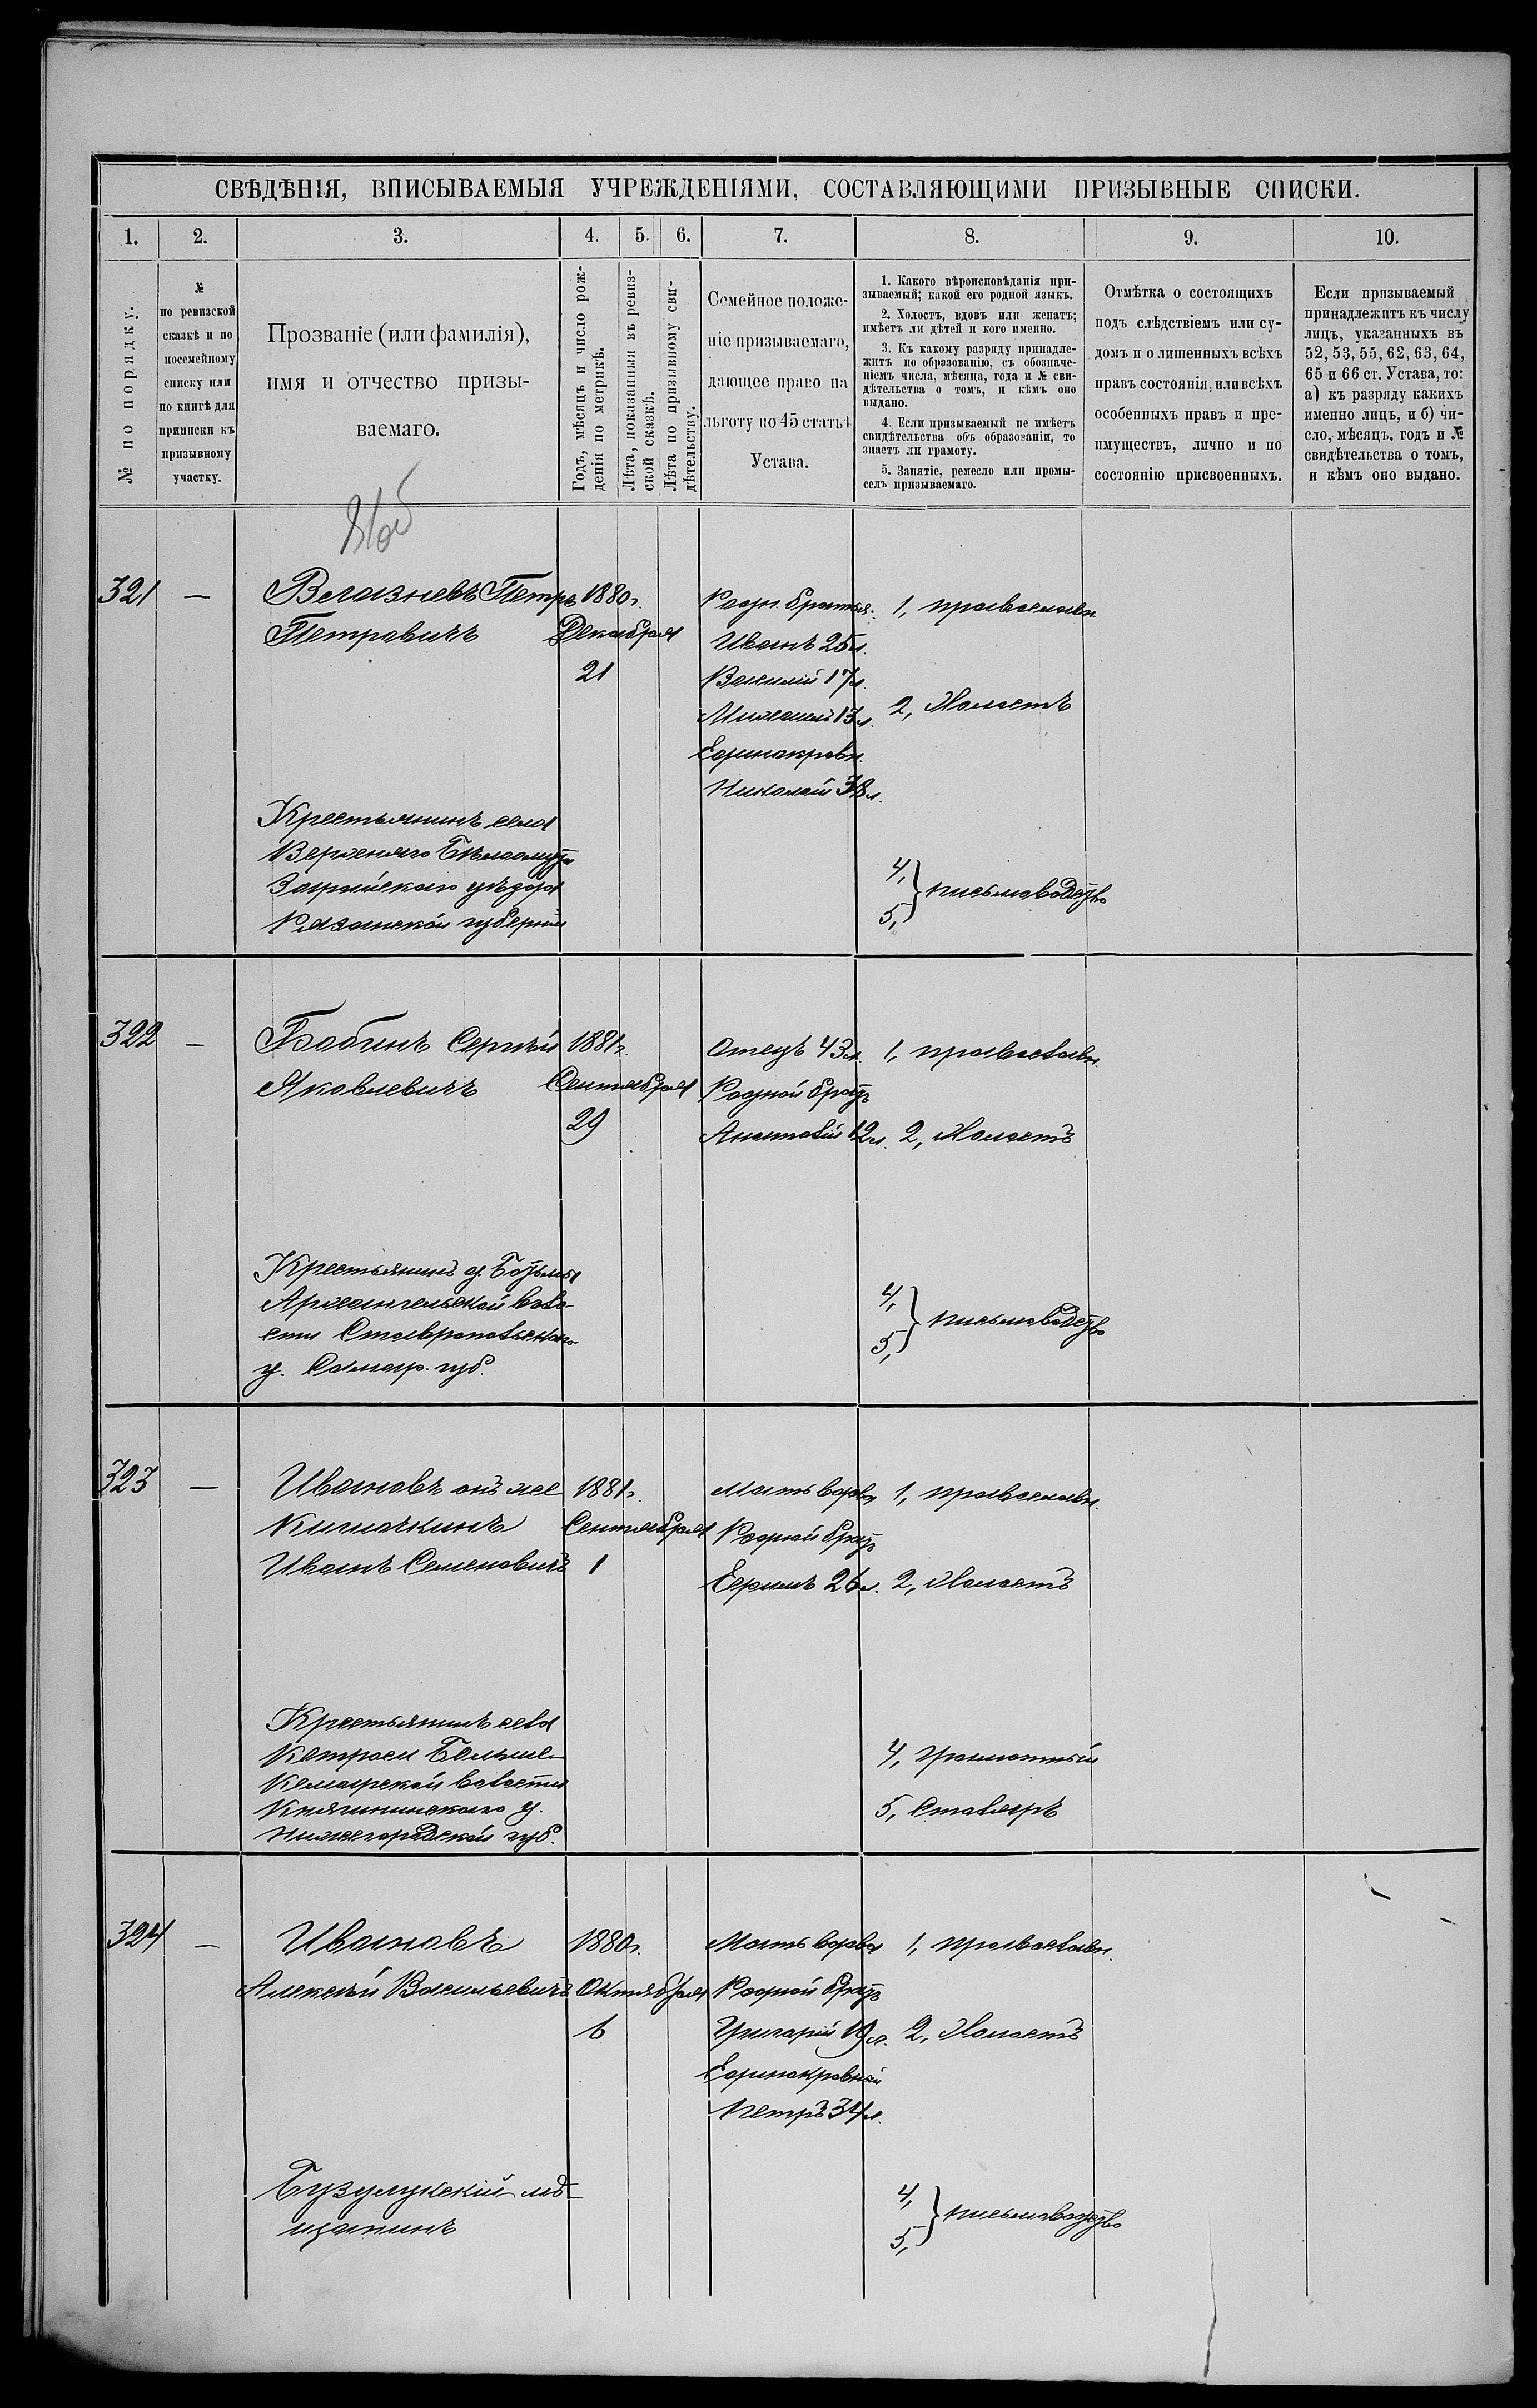 СВѢДѢНІЯ, ВПИСЫВАЕМЫЯ УЧРЕЖДЕНІЯМИ, СОСТАВЛЯЮЩИМИ ПРИЗЫВНЫЕ СПИСКИ.
1. 2. 3. 4. 5. 6. 7. 8. 9. 10.
№ по порядку.
№
по ревизской
сказкѣ и по
посемейному
списку или
по книгѣ для
приписки къ
призывному
участку.
Прозваніе (или фамилія),
имя и отчество призы-
ваемаго.
Годъ, мѣсяцъ и число рож-
денія по метрикѣ.
Лѣта, показанныя въ ревиз-
ской сказкѣ.
Лѣта по призывному сви-
дѣтельству.
Семейное положе-
ніе призываемаго,
дающее право на
льготу по 45 статьѣ
Устава.
1. Какого вѣроисповѣданія при-
зываемый; какой его родной языкъ.
2. Холостъ, вдовъ или женатъ;
имѣетъ ли дѣтей и кого именно.
3. Къ какому разряду принадле-
житъ по образованію, съ обозначе-
ніемъ числа, мѣсяца, года и № сви-
дѣтельства о томъ, и кѣмъ оно
выдано.
4. Если призываемый не имѣетъ
свидѣтельства объ образованіи, то
знаетъ ли грамоту.
5. Занятіе, ремесло или промы-
селъ призываемаго.
Отмѣтка о состоящихъ
подъ слѣдствіемъ или су-
домъ и о лишенныхъ всѣхъ
правъ состоянія, или всѣхъ
особенныхъ правъ и пре-
имуществъ, лично и по
состоянію присвоенныхъ.
Если призываемый
принадлежитъ къ числу
лицъ, указанныхъ въ
52, 53, 55, 62, 63, 64,
65 и 66 ст. Устава, то:
а) къ разряду какихъ
именно лицъ, и б) чи-
сло, мѣсяцъ, годъ и №
свидѣтельства о томъ,
и кѣмъ оно выдано.
321 —
Петръ
Петровичъ
Крестьянинъ села
Верхняго Бѣлоомута
Зарайскаго уѣзда
Рязанской губерніи
1880 г.
Декабря
21
Родн. братья:
Иванъ 25 л.
Василій 17 л.
Михаилъ 13 л.
Единокровн.
Николай 38 л.
1, православн.
2, Холостъ
4,
5, } письмоводство
322 —
Бабинъ Сергѣй
Яковлевичъ
Крестьянинъ д.
Архангельской воло-
сти Ставропольскаго
у. Самар. губ.
1881 г.
Сентября
29
Отецъ 43 л.
Родной братъ
Анатолій 12 л.
1, православн.
2, Холостъ
4,
5, } письмоводство
323 —
Ивановъ онъ же
Кичаткинъ
Иванъ Семеновичъ
Крестьянинъ села
Кетроси Больше-
Кемарской волости
Княгининскаго у.
Нижегородской губ.
1881 г.
Сентября
1
Мать вдова
Родной братъ
Ефимъ 26 л.
1, православн.
2, Холостъ
4, грамотный
5, Столяръ
324 —
Ивановъ
Алексѣй Васильевичъ
Бузулукскій мѣ-
щанинъ
1880 г.
Октября
6
Мать вдова
Родной братъ
Григорій 19 л.
Единокровный
Петръ 34 л.
1, православн.
2, Холостъ
4,
5, } письмоводство